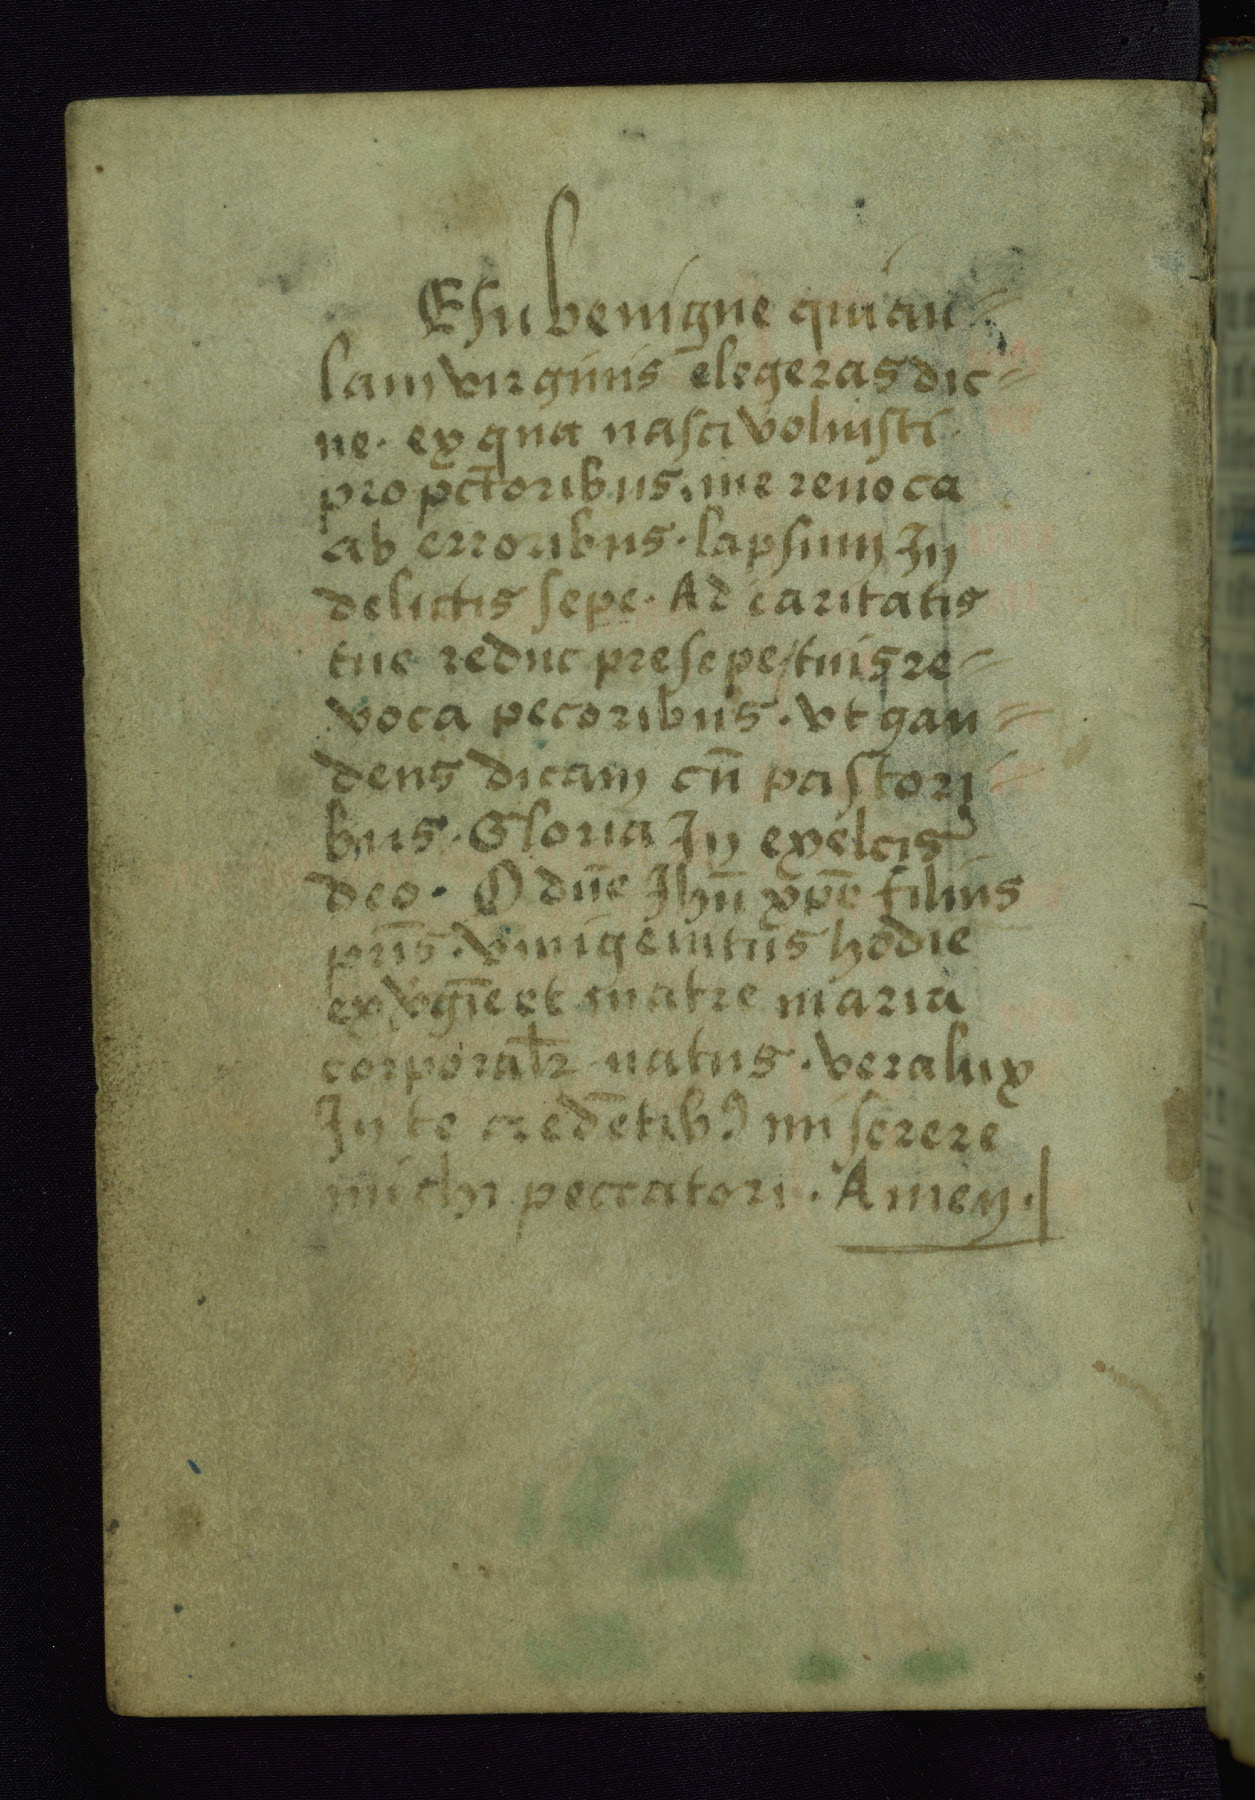 Esu benigne qui au=
lam virginis elegeras dic=
ne. ex qua nasci voluisti
pro pctoribus. me reuoca
ab erroribus. lapsum In
delictis sepe. Ad caritatis
tue reduc presepe/tuis re=
voca pecoribus. vt gau=
dens dicam cū pastori=
bus. Gloria In exelcis
deo. O dn̄e Ihū xp̄e filius
pr̄is. vnigenitus hodie
ex v̄gīe et matre maria
corporalr̄ natus. vera lux
In te credētibꝰ miserere
michi peccatori. Amen.